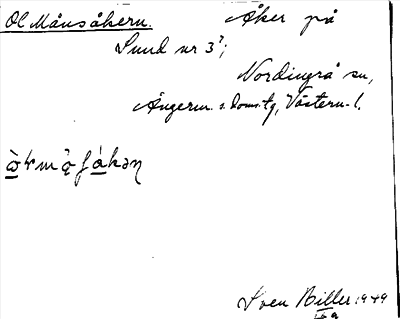 Ol Månsåkern. Åker på
Sund nr 3²;
Nordingrå sn,
Ångerm. s. doms:tg, Västern. l.
Sven Biller 1949